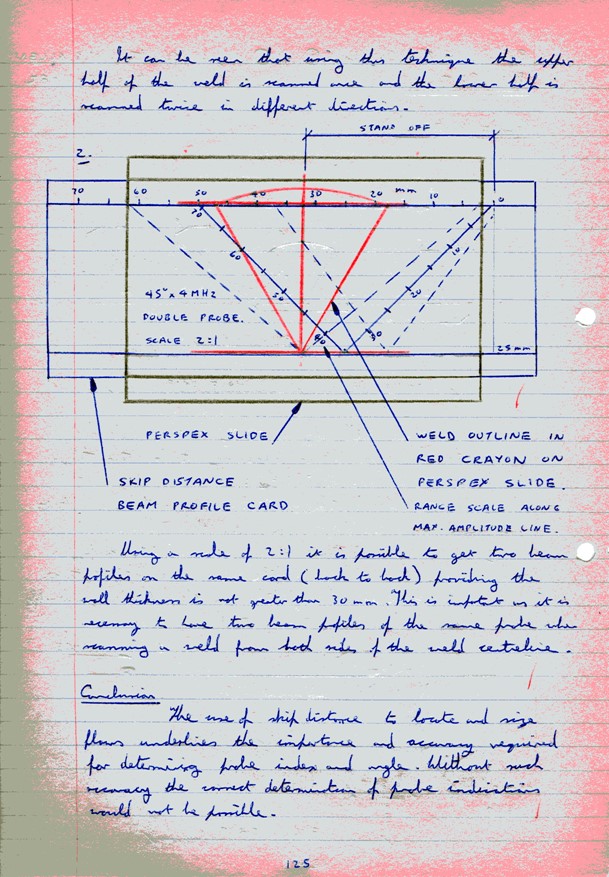 It can be seen that using this technique the upper
half of the weld is scanned once and the lower half is
scanned twice in different directions.
STAND OFF
2.
70 60 50 40 30 20 mm 10 0
70
60
50
40
30
20
10
45° x 4 MHz
DOUBLE PROBE.
SCALE 2:1
25mm
PERSPEX SLIDE
WELD OUTLINE IN
RED CRAYON ON
PERSPEX SLIDE.
SKIP DISTANCE
BEAM PROFILE CARD
RANGE SCALE ALONG
MAX. AMPLITUDE LINE.
Using a scale of 2:1 it is possible to get two beam
profiles on the same card (back to back) providing the
wall thickness is not greater than 30 mm. This is important as it is
necessary to have two beam profiles of the same probe when
scanning a weld from both sides of the weld centreline.
Conclusion
The use of skip distance to locate and size
flaws underlines the importance and accuracy required
for determining probe index and angle. Without such
accuracy the correct determination of probe indications
would not be possible.
125